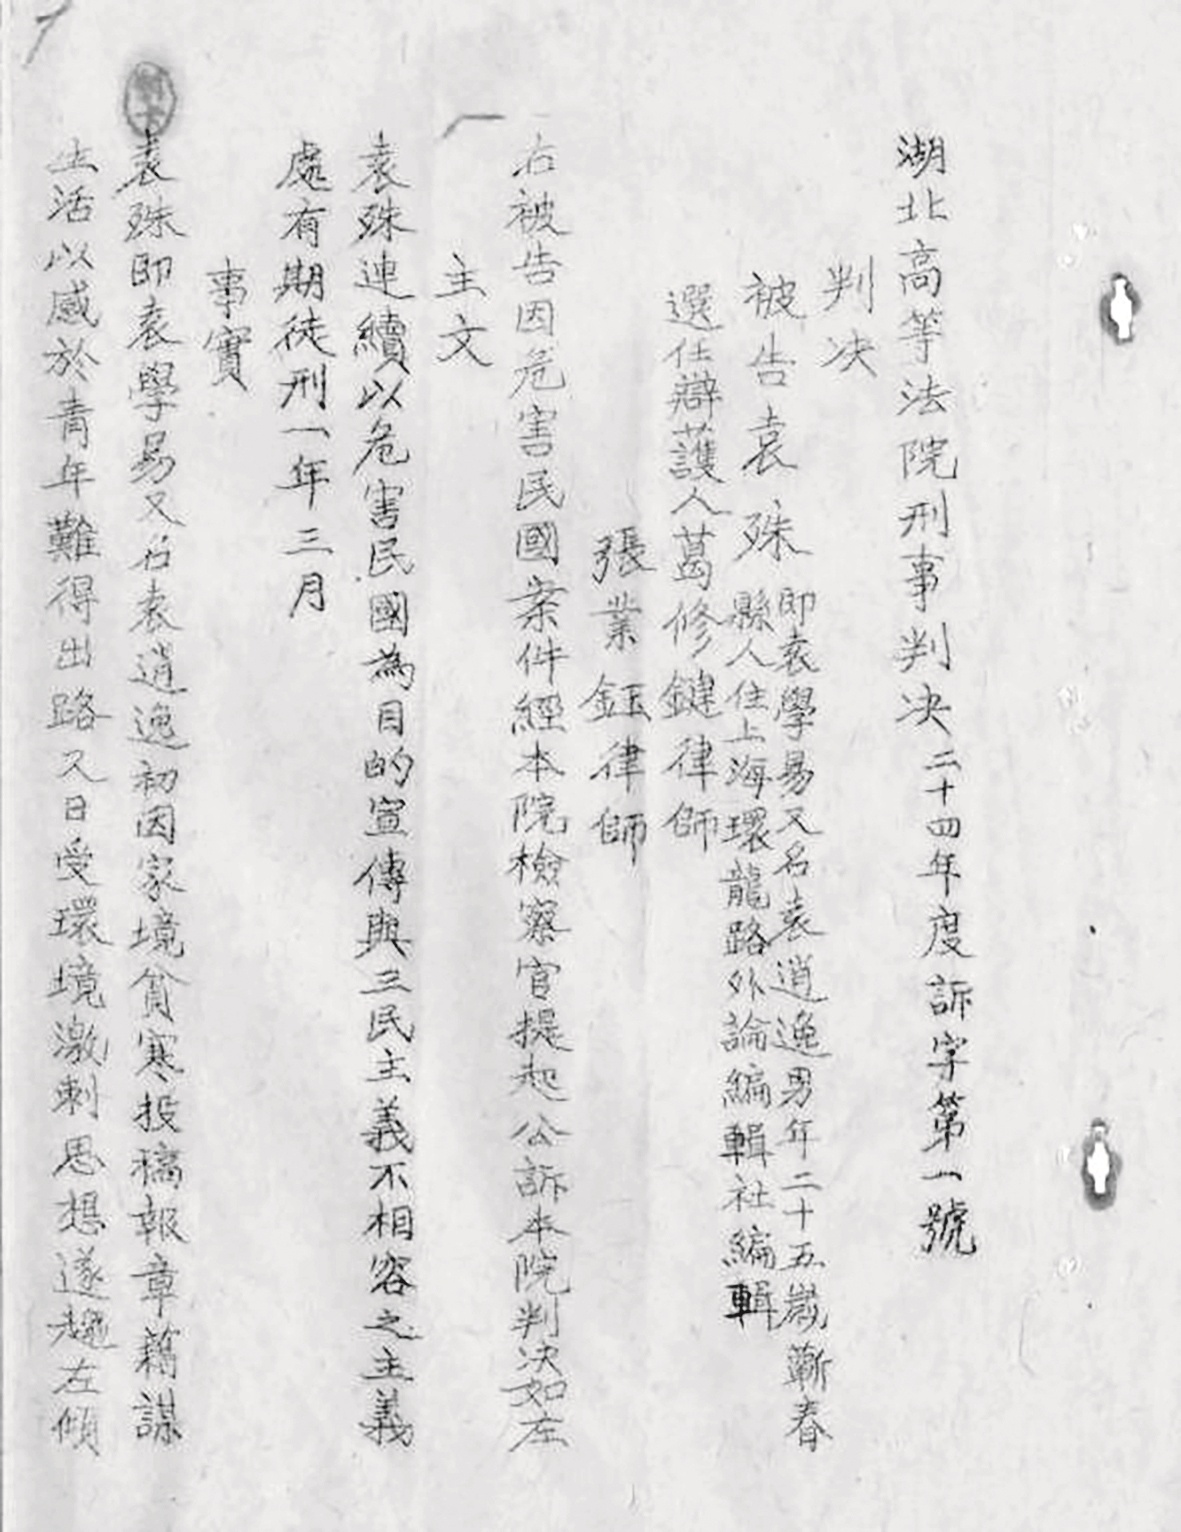 湖北高等法院刑事判决二十四年度訴字第一號
判决
被告袁殊即袁學易又名袁逍逸男年二十五歲蘄春
縣人住上海環龍路外論編輯社編輯
選任辯護人葛修鍵律師
張業鈺律師
右被告因危害民國案件經本院檢察官提起公訴本院判决如左
主文
袁殊連續以危害民國為目的宣傳與三民主義不相容之主義
處有期徒刑一年三月
事實
袁殊即袁學易又名袁逍逸初因家境貧寒投稿報章藉謀
生活以感於青年難得出路又日受環境激刺思想遂趨左傾